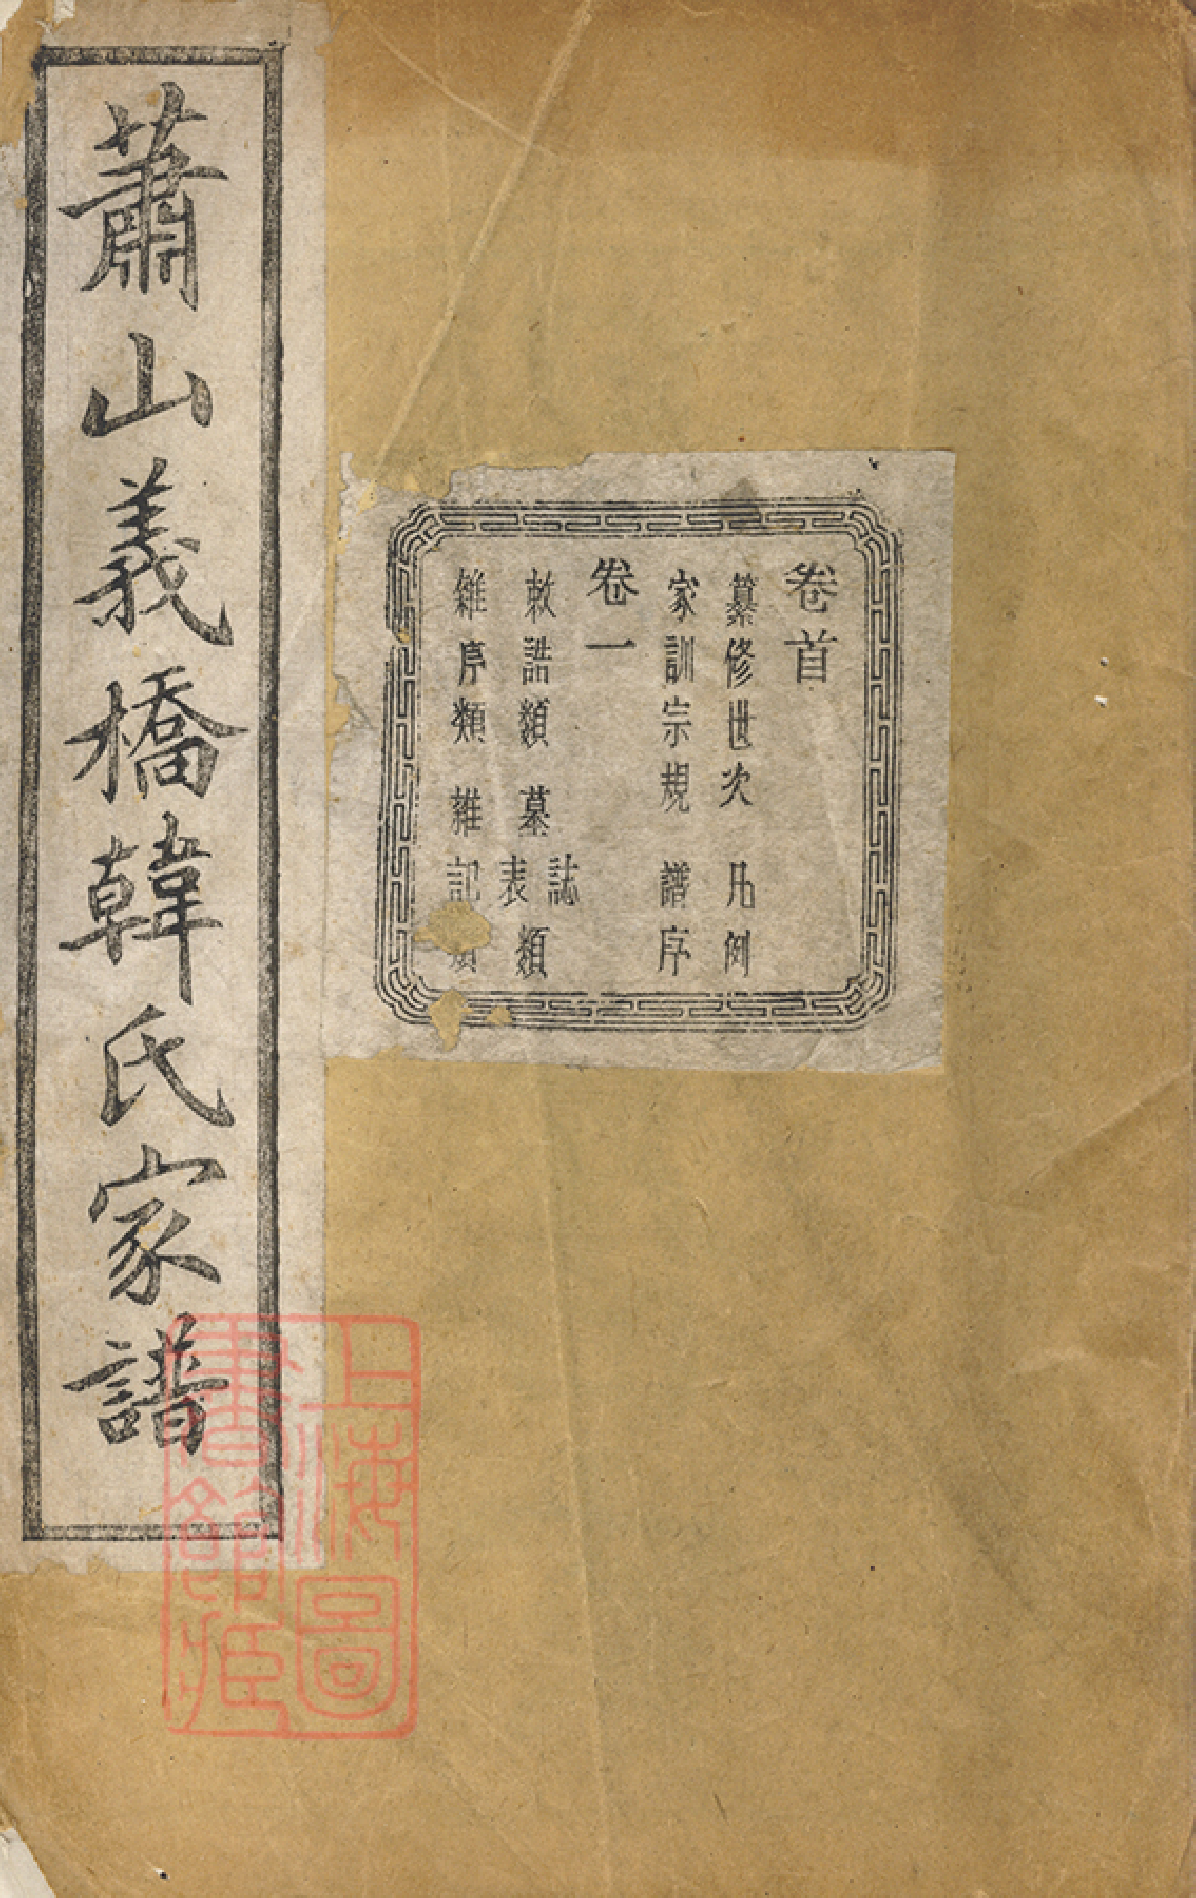 蕭山義橋韓氏家譜
卷首
纂修世次 凡例
家訓宗規 譜序
卷一
敕誥類 墓誌表類
雜序類 雜記類
上海圖
書館藏